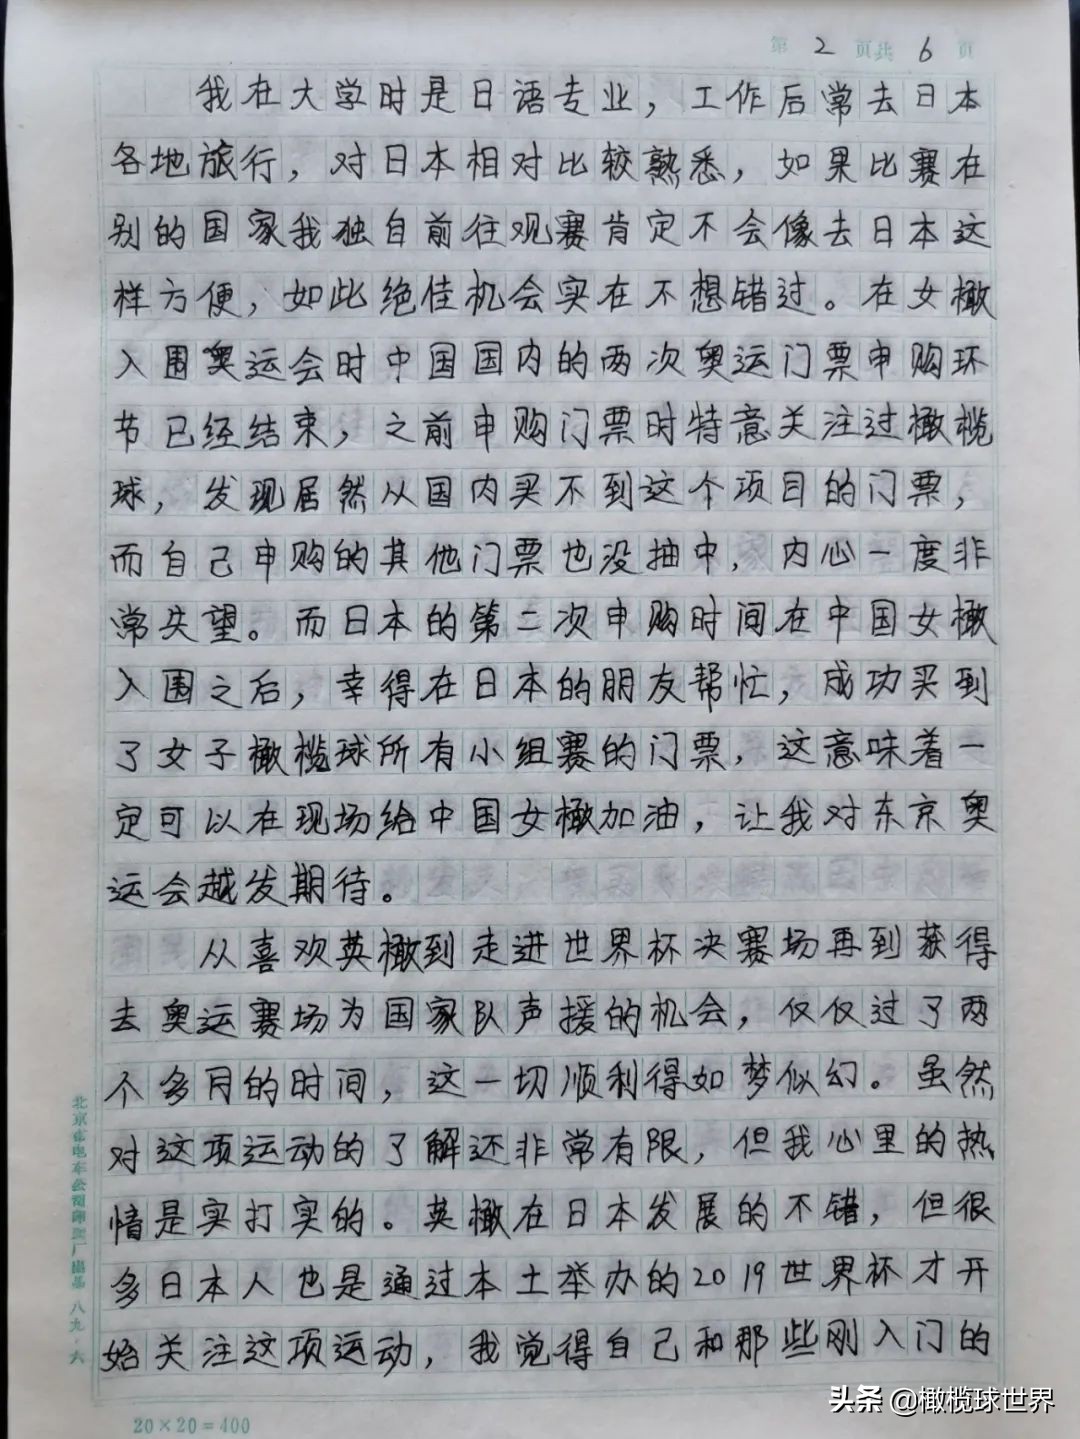 第 2 页共 6 页
我在大学时是日语专业，工作后常去日本
各地旅行，对日本相对比较熟悉，如果比赛在
别的国家我独自前往观赛肯定不会像去日本这
样方便，如此绝佳机会实在不想错过。在女橄
入围奥运会时中国国内的两次奥运门票申购环
节已经结束，之前申购门票时特意关注过橄榄
球，发现居然从国内买不到这个项目的门票，
而自己申购的其他门票也没抽中，内心一度非
常失望。而日本的第二次申购时间在中国女橄
入围之后，幸得在日本的朋友帮忙，成功买到
了女子橄榄球所有小组赛的门票，这意味着一
定可以在现场给中国女橄加油，让我对东京奥
运会越发期待。
从喜欢英橄到走进世界杯决赛场再到获得
去奥运赛场为国家队声援的机会，仅仅过了两
个多月的时间，这一切顺利得如梦似幻。虽然
对这项运动的了解还非常有限，但我心里的热
情是实打实的。英橄在日本发展的不错，但很
多日本人也是通过本土举办的2019世界杯才开
始关注这项运动，我觉得自己和那些刚入门的
北京市电车公司印刷厂出品 八九·六
20×20=400
头条 @橄榄球世界